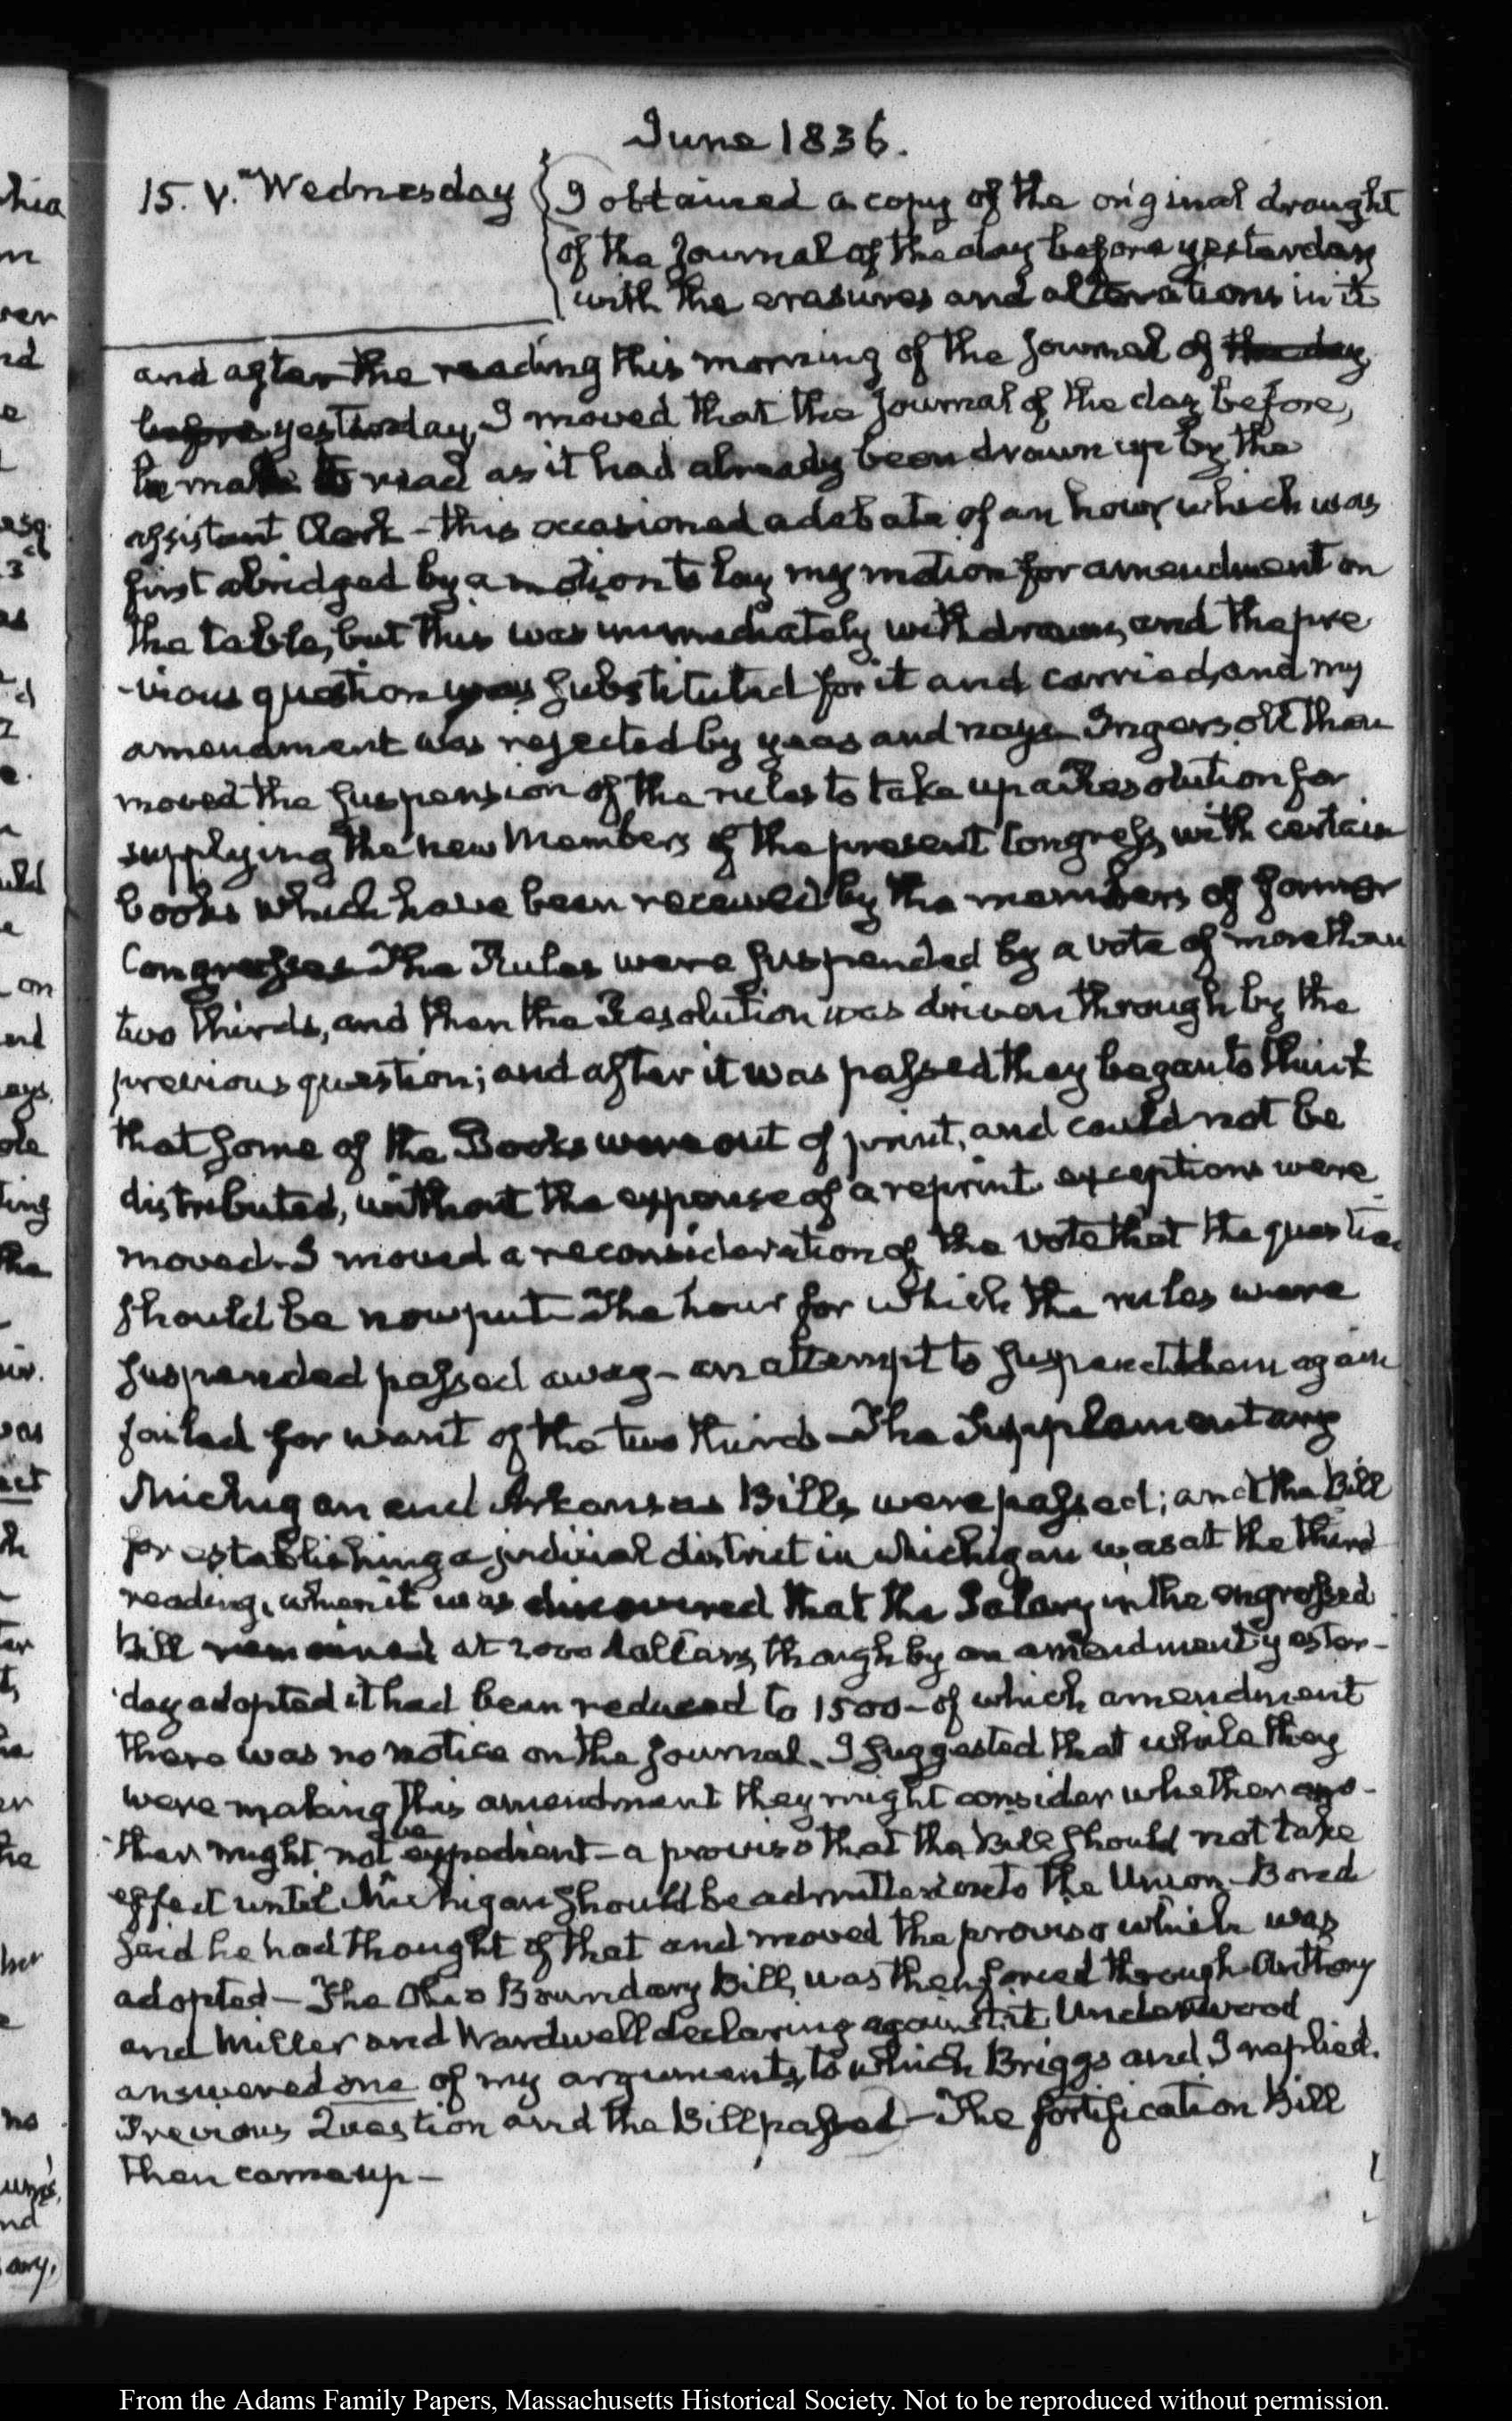 June 1836.
15. V. Wednesday
I obtained a copy of the original draught
of the Journal of the day before yesterday
with the erasures and alterations in it
and after the reading this morning of the Journal of the day
before yesterday, I moved that the Journal of the day before,
be made to read as it had already been drawn up by the
assistant Clerk - this occasioned a debate of an hour, which was
first abridged by a motion to lay my motion for amendment on
the table, but this was immediately withdrawn, and the pre
-vious question was substituted for it and carried, and my
amendment was rejected by yeas and nays - Ingersoll then
moved the suspension of the rules to take up a Resolution for
supplying the new Members of the present Congress, with certain
books which have been received by the members of former
Congresses - The Rules were suspended by a vote of more than
two thirds, and then the Resolution was driven through by the
previous question; and after it was passed they began to think
that some of the Books were out of print, and could not be
distributed, without the expense of a reprint - exceptions were
moved - I moved a reconsideration of the vote that the question
should be now put - The hour for which the rules were
suspended passed away - an attempt to suspend them again
failed for want of the two thirds - The Supplementary
Michigan and Arkansas Bills were passed; and the Bill
for establishing a judicial district in Michigan was at the third
reading, when it was discovered that the Salary in the engrossed
Bill remained at 2000 dollars, though by an amendment yester-
day adopted it had been reduced to 1500 - of which amendment
there was no notice on the Journal. I suggested that while they
were making this amendment they might consider whether ano-
ther might not be expedient - a proviso that the Bill should not take
effect until Michigan should be admitted into the Union - Bond
said he had thought of that and moved the proviso which was
adopted - The Ohio Boundary Bill, was then forced through - Anthony
and Miller and Wardwell declaring against it. Underwood
answered one of my arguments, to which Briggs and I replied.
Previous Question and the Bill passed - The fortification Bill
then came up -
From the Adams Family Papers, Massachusetts Historical Society. Not to be reproduced without permission.